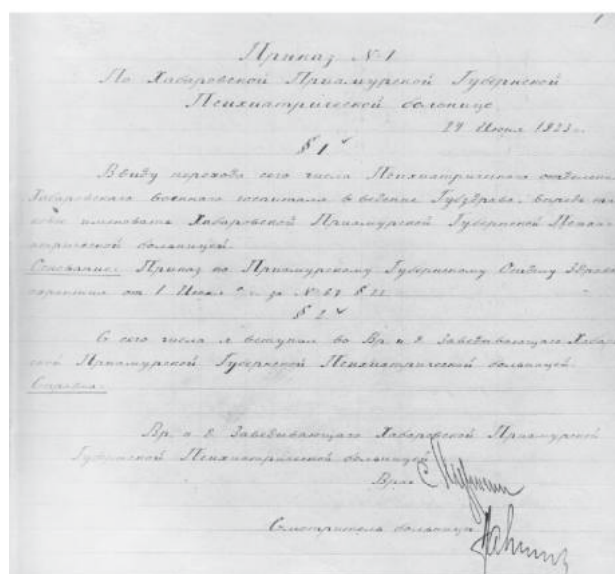 Приказ №1
По Хабаровской Приамурской Губернской
Психиатрической больнице
29 Июня 1923 г.
§ 1
Ввиду перехода сего числа Психиатрического отделения
Хабаровского военного госпиталя в ведение Губздрава, впредь
именовать Хабаровской Приамурской Губернской Психи-
атрической больницей.
Основание: Приказ по Приамурскому Губернскому Отделу Здраво-
охранения от 1 за № 67 § 11
§ 2
С сего числа я вступил во Вр. и. д. Заведывающего Хабаров-
ской Приамурской Губернской Психиатрической больницей.
Справка:
Вр. и. д. Заведывающего Хабаровской Приамурской
Губернской Психиатрической больницей
Врач
Смотритель больницы